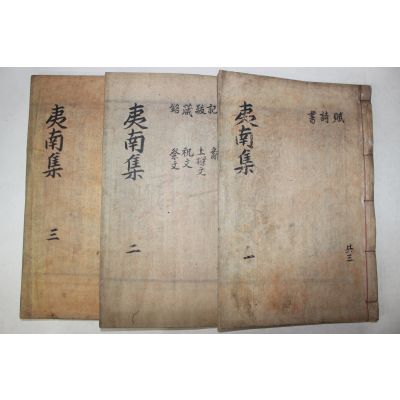 夷南集
一
賦
詩
書
共三
夷南集
二
記
跋 上樑文
箴 祝文
銘 祭文
夷南集
三